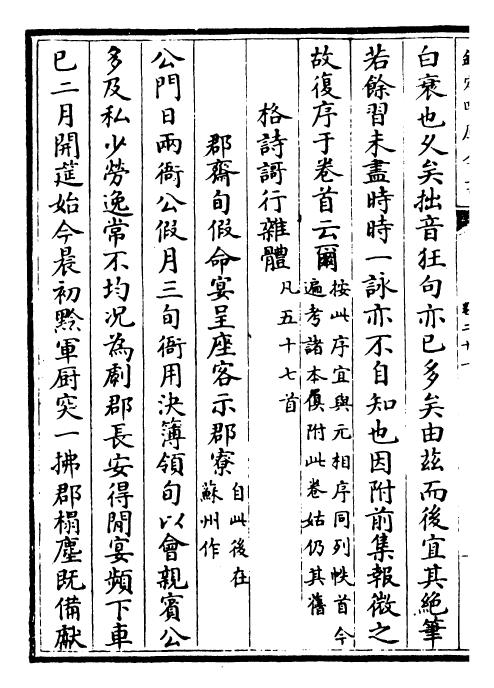 白衰也久矣拙音狂句亦已多矣由兹而後宜其絶筆
若餘習未盡時時一詠亦不自知也因附前集報微之
故復序于卷首云爾
按此序宜與元相序同列帙首今
遍考諸本俱附此卷姑仍其舊
格詩謌行雜體
凡五十七首
郡齋旬假命宴呈座客示郡寮
自此後在
蘇州作
公門日兩衙公假月三旬衙用決簿領旬以會親賓公
多及私少勞逸常不均况為劇郡長安得閒宴頻下車
已二月開筵始今晨初黔軍厨突一拂郡榻塵既備獻